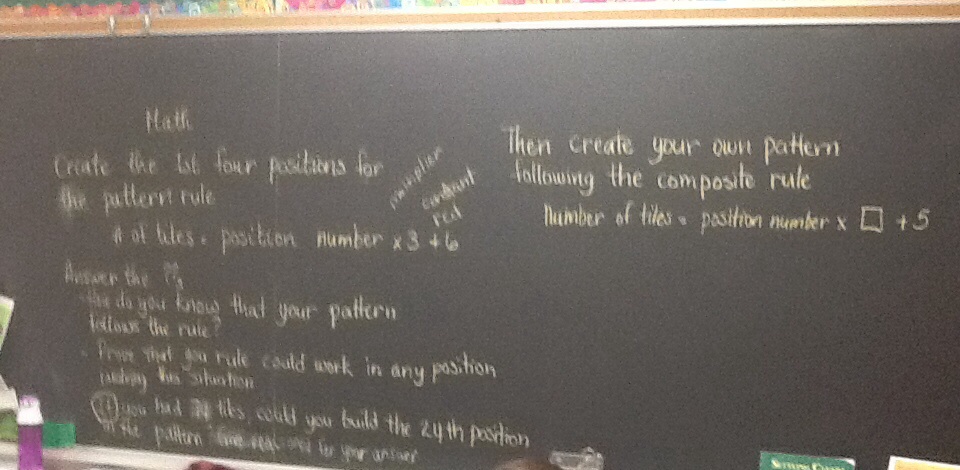 Math
Create the 1st four positions for
the pattern rule
# of tiles = position number x 3 + 6
multiplier
constant
red
Answer the ?s
How do you know that your pattern
follows the rule?
- Prove that you rule could work in any position
this situation
If you had tiles, could you build the 24th position
in the pattern for your answer
Then create your own pattern
following the composite rule
Number of tiles = position number x □ + 5